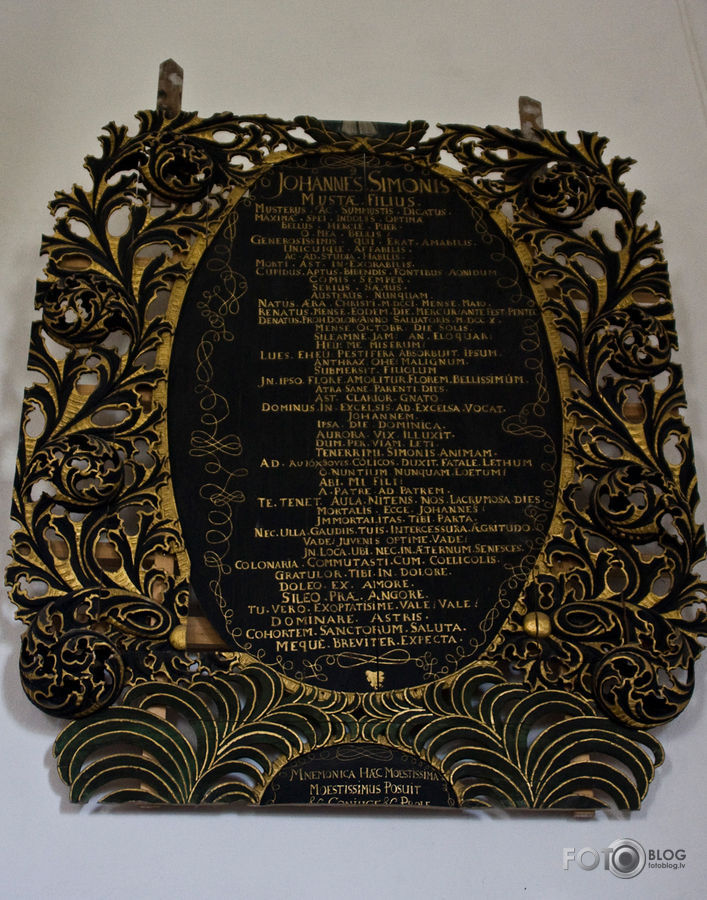 JOHANNES SIMONIS
MUSTÆ. FILIUS.
MUSTERUS. AC. SUMMIISTIS. DICATUS.
MAXIMÆ. SPEI. INDOLES. OPTIMA
BELLUS. HERCLE. PUER.
O. MEA. BELLIS.
GENEROSISSIMUS. QUI. ERAT. AMABILIS.
UNICUIQUE. AFFABILIS.
AC. AD. STUDIA. HABILIS.
MORTI. AST. IN. EXORABILIS.
CUPIDUS. APTUS. BIBENDIS. FONTIBUS. AONIDUM
COMIS. SEMPER.
SERIUS. SATUS.
AUSTERUS. NUNQUAM.
NATUS. ÆRA. CHRISTI. M.DCCI. MENSE. MAIO.
RENATUS. MENSE. EODEM. DIE. MERCUR. ANTE. FEST. PENTEC
DENATUS. PROH. DOLOR. ANNO. SALVATORIS. M.DCC.X.
MENSE. OCTOBR. DIE. SOLIS.
SILEAMNE. JAM. AN. ELOQUAR.
HEU. ME. MISERUM!
LUES. EHEU. PESTIFERA. ABSORBUIT. IPSUM.
ANTHRAX. OHE. MALIGNUM.
SUBMERSIT. FILIOLUM
JN. IPSO. FLORE. AMOLITUR. FLOREM. BELLISSIMUM.
ATRA. SANE. PARENTI. DIES.
AST. CLARIOR. GNATO.
DOMINUS. IN. EXCELSIS. AD. EXCELSA. VOCAT.
JOHANNEM.
IPSA. DIE. DOMINICA.
AURORA. VIX. ILLUXIT.
DUM. PER. VIAM. LETI.
TENERRIMI. SIMONIS. ANIMAM.
AD. CŒLICOS. DUXIT. FATALE. LETHUM
O. NUNTIUM. NUNQUAM. LOETUM!
ABI. MI. FILI!
A. PATRE. AD. PATREM.
TE. TENET. AULA. NITENS. NOS. LACRUMOSA. DIES.
MORTALIS. ECCE. JOHANNES!
JMMORTALITAS. TIBI. PARTA.
NEC. ULLA. GAUDIIS. TUIS. INTERCESSURA. ÆGRITUDO.
VADE! JUVENIS. OPTIME. VADE!
JN. LOCA. UBI. NEC. IN. ÆTERNUM. SENESCES.
COLONARIA. COMMUTASTI. CUM. COELICOLIS.
GRATULOR. TIBI. IN. DOLORE.
DOLEO. EX. AMORE.
SILEO. PRÆ. ANGORE.
TU. VERO. EXOPTATISIME. VALE! VALE!
DOMINARE. ASTRIS.
COHORTEM. SANCTORUM. SALUTA.
MEQUE. BREVITER. EXPECTA.
MNEMONICA HÆC MOESTISSIMA
MOESTISSIMUS POSUIT
&C. CONJUGE &C. PROLE
FOTOBLOG
fotoblog.lv